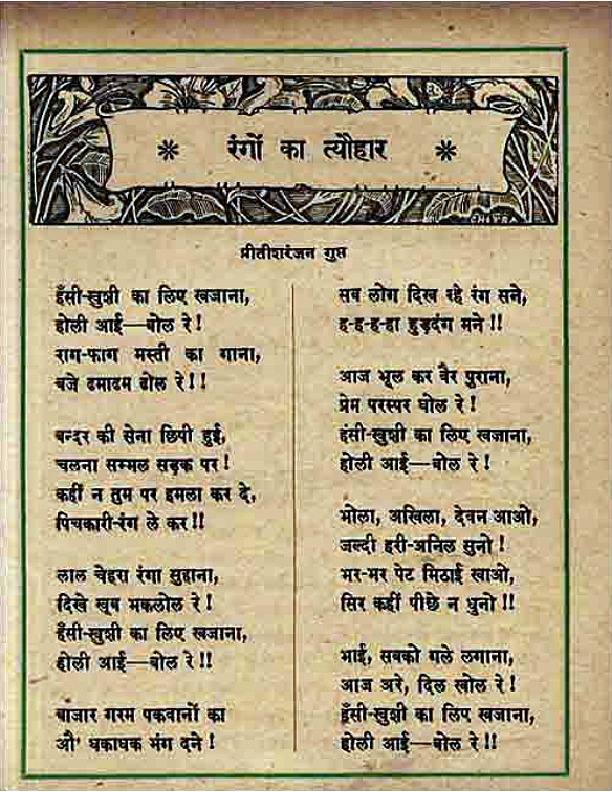 * रंगों का त्यौहार *
प्रीतीशरंजन गुप्त
हँसी-खुशी का लिए खजाना,
होली आई—बोल रे!
राग-फाग मस्ती का गाना,
बजे ढमाढम ढोल रे!!
बन्दर की सेना छिपी हुई,
चलना सम्भल सड़क पर!
कहीं न तुम पर हमला कर दे,
पिचकारी-रंग ले कर!!
लाल चेहरा रंगा सुहाना,
दिखे खूब मकलोल रे!
हँसी-खुशी का लिए खजाना,
होली आई—बोल रे!!
बाजार गरम पकवानों का
औ' धकाधक भंग दने!
सब लोग दिख रहे रंग सने,
ह-ह-ह-हा हुड़दंग मने!!
आज भूल कर बैर पुराना,
प्रेम परस्पर घोल रे!
हंसी-खुशी का लिए खजाना,
होली आई—बोल रे!
भोला, अखिला, देवन आओ,
जल्दी हरी-अनिल सुनो!
भर-भर पेट मिठाई खाओ,
सिर कहीं पीछे न धुनो!!
भाई, सबको गले लगाना,
आज अरे, दिल खोल रे!
हँसी-खुशी का लिए खजाना,
होली आई—बोल रे!!